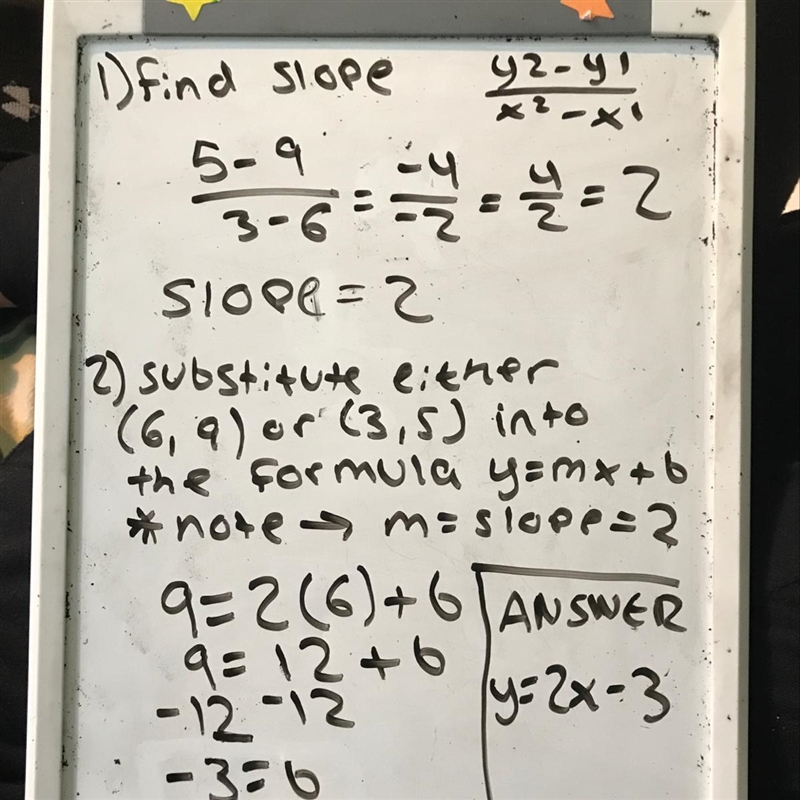 1) find slope y2-y1
x2-x1
5-9
3-6 = -4
-2 = 4
2 = 2
slope=2
2) substitute either
(6,9) or (3,5) into
the formula y=mx+b
*note → m=slope=2
9=2(6)+b
9=12+b
-12 -12
-3=b
ANSWER
y=2x-3